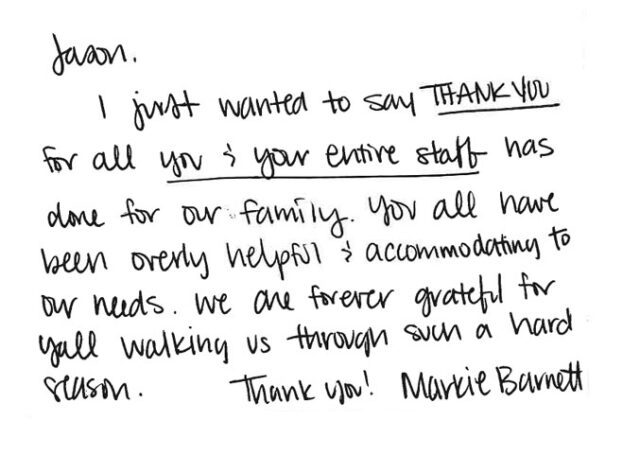 Jason.
I just wanted to say THANK YOU
for all you & your entire staff has
done for our family. You all have
been overly helpful & accommodating to
our needs. We are forever grateful for
yall walking us through such a hard
season. Thank you! Markie Barnett